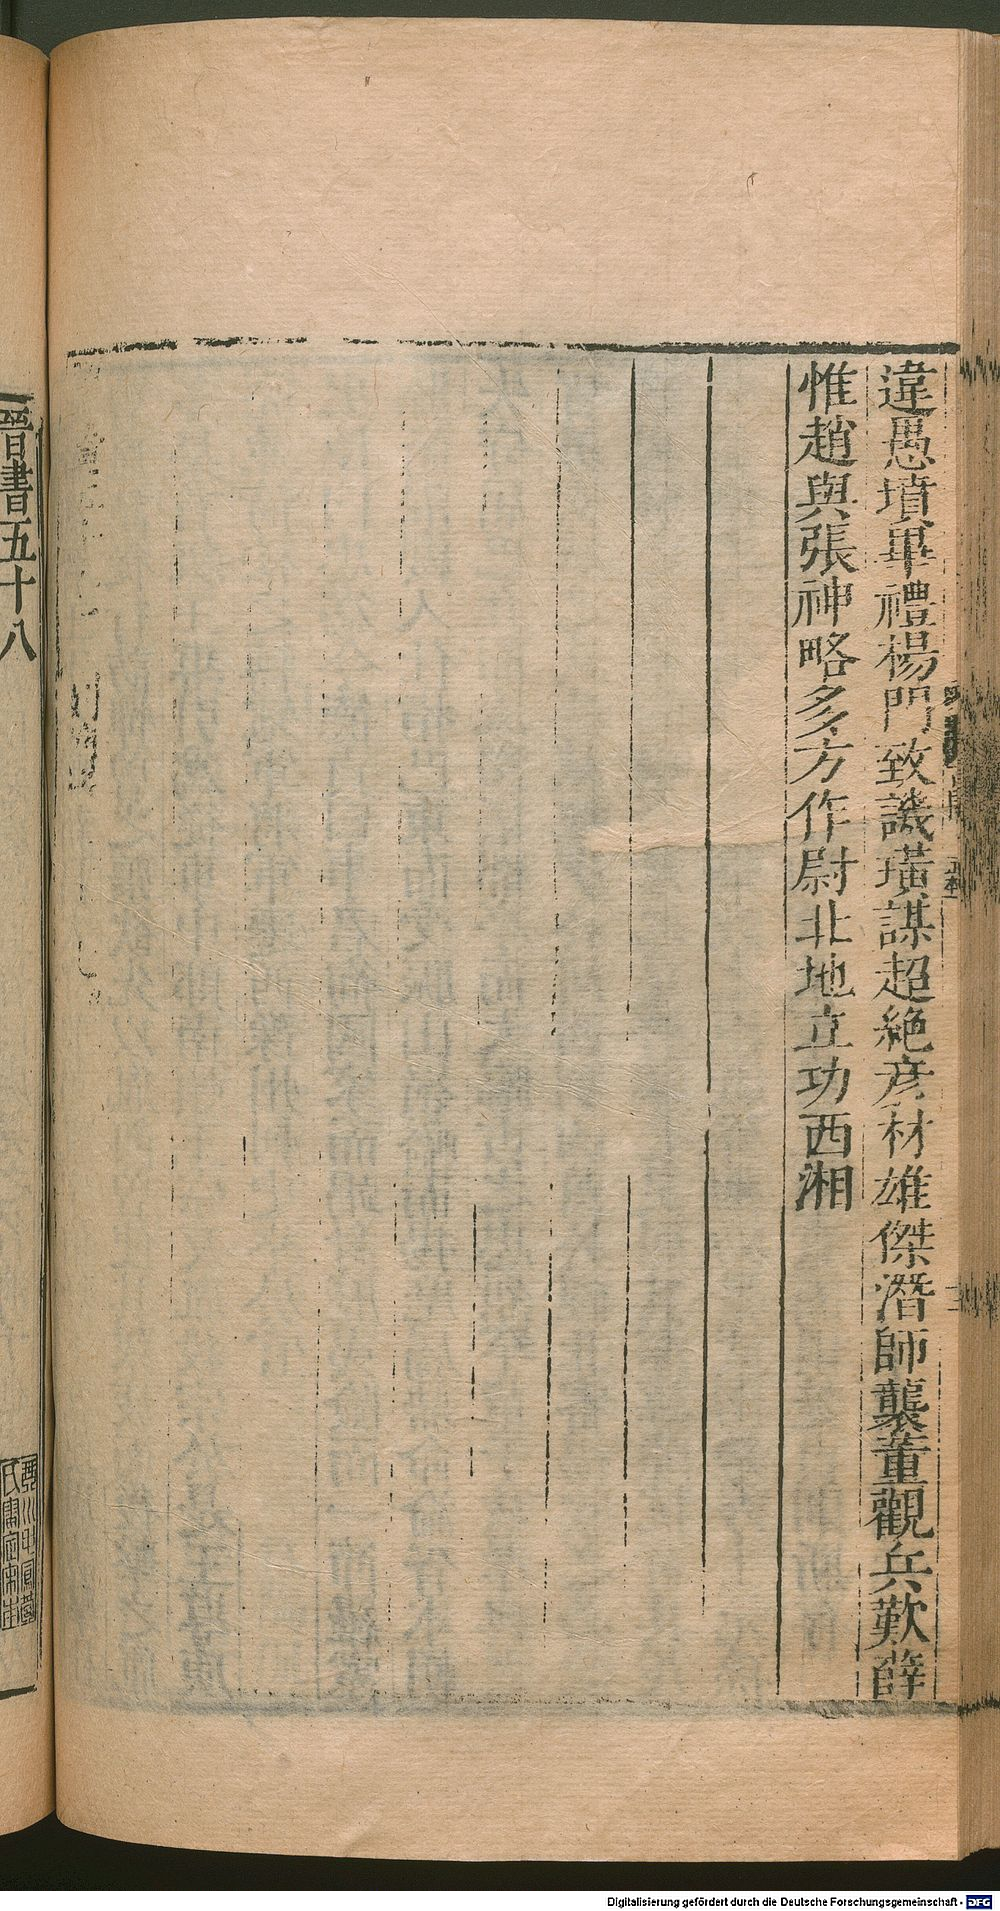 違愚墳畢禮楊門致譏璜謀超絶彦材雄傑潛師襲董觀兵歎薛
惟趙與張神略多方作尉北地立功西湘
晉書五十八
Digitalisierung gefördert durch die Deutsche Forschungsgemeinschaft - DFG